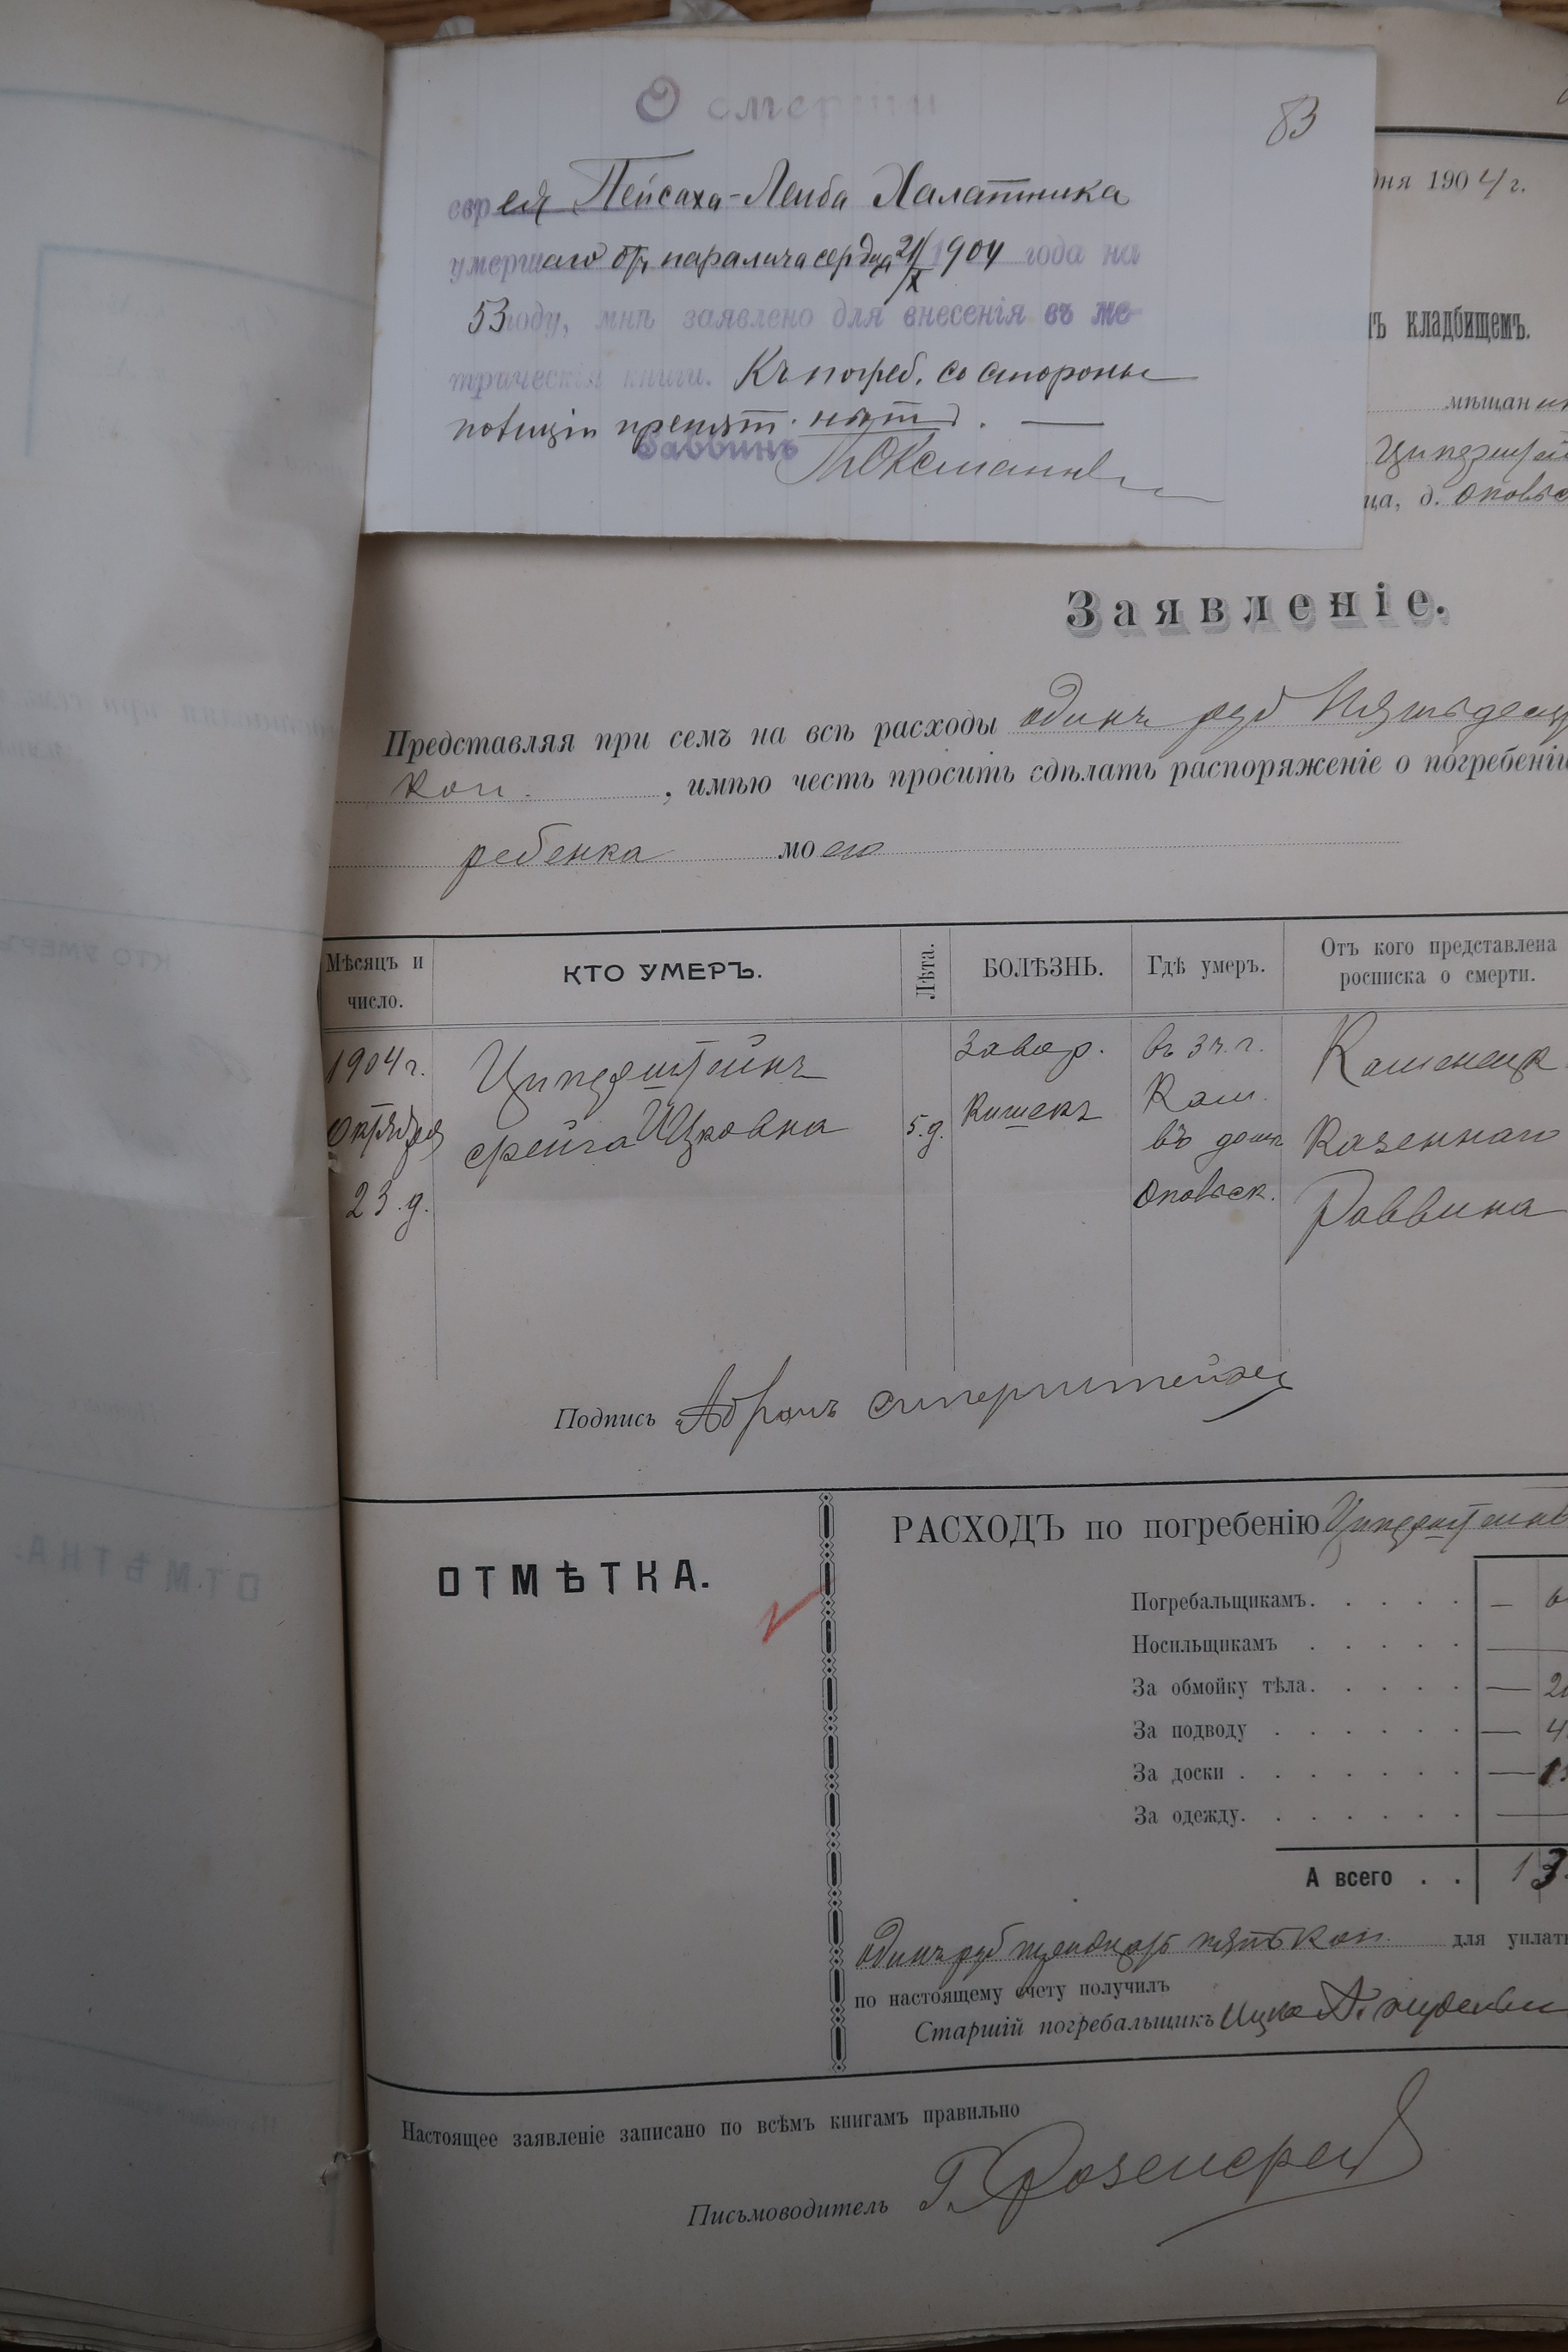 О смерти
83
еврея Пейсаха-Лейба Халатника
умершаго отъ паралича сердца 21/X 1904 года на
53 году, мнѣ заявлено для внесенія въ ме-
трическія книги. Къ погреб. со стороны
полиціи препят. нѣтъ. —
Раввинъ
дня 1904 г.
ъ кладбищемъ.
мѣщан
ца, д.
Заявленіе.
Представляя при семъ на всѣ расходы одинъ руб
коп. , имѣю честь просить сдѣлать распоряженіе о погребені
ребенка моего
Мѣсяцъ и число.
КТО УМЕРЪ.
Лѣта.
БОЛѢЗНЬ.
Гдѣ умеръ.
Отъ кого представлена росписка о смерти.
1904 г.
Октября
23 д.
Циперштейнъ
Фейга Ицковна
5 д.
Завор.
Кишекъ
въ
въ домѣ
Казеннаго
Раввина
Подпись Абрамъ
ОТМѢТКА.
РАСХОДЪ по погребенію
Погребальщикамъ. . . . . —
Носильщикамъ . . . . . —
За обмойку тѣла. . . . . —
За подводу . . . . . . —
За доски . . . . . . . —
За одежду. . . . . . . —
А всего . .
одинъ руб тридцать пять коп. для уплат
по настоящему счету получилъ
Старшій погребальщикъ Ицко
Настоящее заявленіе записано по всѣмъ книгамъ правильно
Письмоводитель Г. Розенфельд